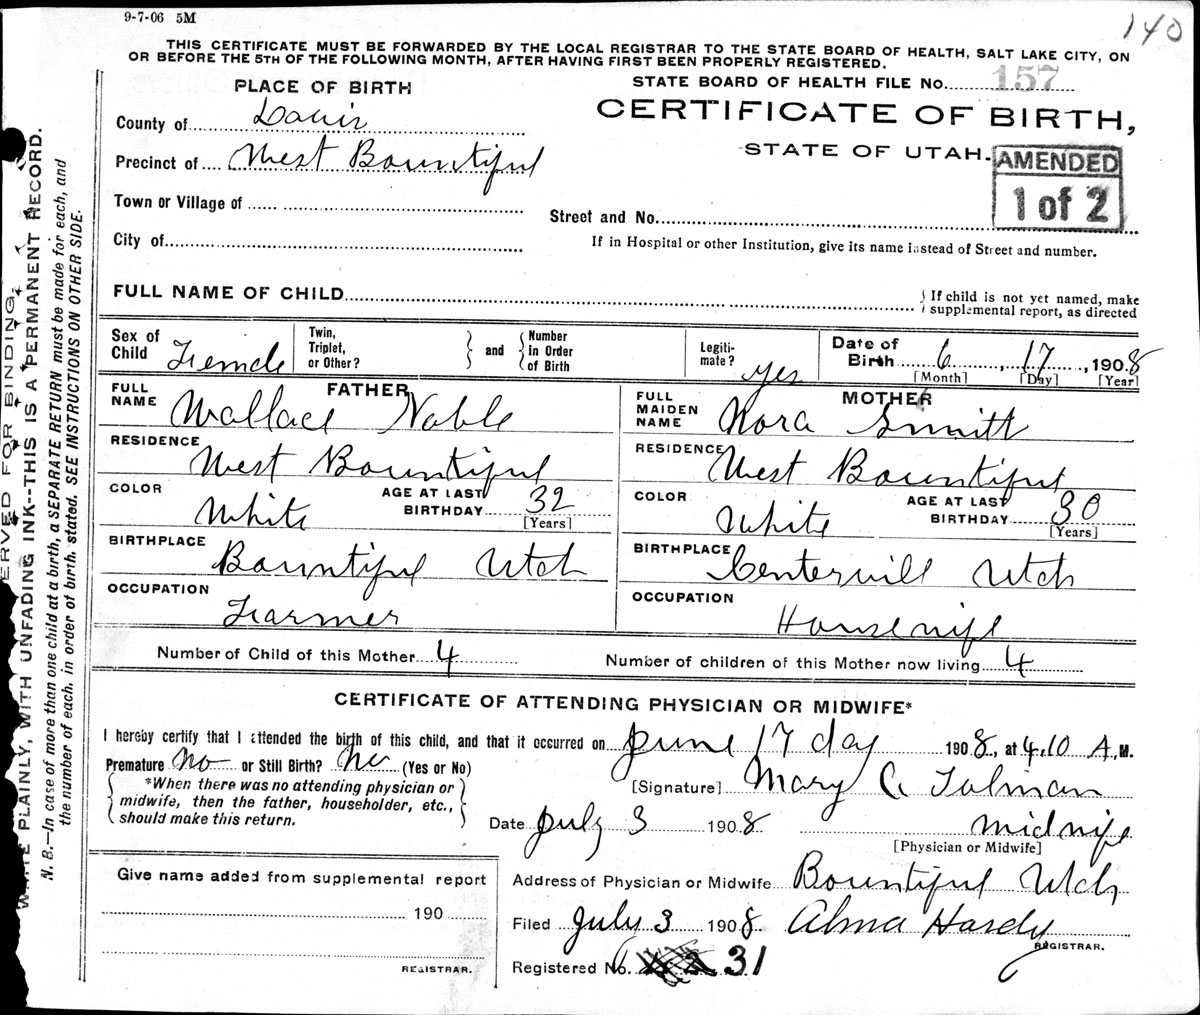 9-7-06 5M
140
THIS CERTIFICATE MUST BE FORWARDED BY THE LOCAL REGISTRAR TO THE STATE BOARD OF HEALTH, SALT LAKE CITY, ON
OR BEFORE THE 5TH OF THE FOLLOWING MONTH, AFTER HAVING FIRST BEEN PROPERLY REGISTERED.
PLACE OF BIRTH
STATE BOARD OF HEALTH FILE No. 157
CERTIFICATE OF BIRTH,
STATE OF UTAH.
AMENDED
1 of 2
County of Davis
Precinct of West Bountiful
Town or Village of
Street and No.
City of
If in Hospital or other Institution, give its name instead of Street and number.
FULL NAME OF CHILD
{ If child is not yet named, make
supplemental report, as directed
Sex of Child Female
Twin, Triplet, or Other? } and { Number in Order of Birth
Legiti-mate? yes
Date of Birth 6, 17, 1908
[Month] [Day] [Year]
FATHER
FULL NAME Wallace Noble
MOTHER
FULL MAIDEN NAME Nora Smith
RESIDENCE West Bountiful
RESIDENCE West Bountiful
COLOR White AGE AT LAST BIRTHDAY 32 [Years]
COLOR White AGE AT LAST BIRTHDAY 30 [Years]
BIRTHPLACE Bountiful Utah
BIRTHPLACE Centervill Utah
OCCUPATION Farmer
OCCUPATION Housewife
Number of Child of this Mother 4
Number of children of this Mother now living 4
CERTIFICATE OF ATTENDING PHYSICIAN OR MIDWIFE*
I hereby certify that I attended the birth of this child, and that it occurred on June 17 day 1908, at 4.10 A.M.
Premature No or Still Birth? No (Yes or No)
{ *When there was no attending physician or
midwife, then the father, householder, etc.,
should make this return. }
[Signature] Mary C. Tolman
Date July 3 1908 midwife
[Physician or Midwife]
Give name added from supplemental report
190
REGISTRAR.
Address of Physician or Midwife Bountiful Utah
Filed July 3 1908 Alma Hardy
REGISTRAR.
Registered No. 31
ERVED FOR BINDING.
WRITE PLAINLY, WITH UNFADING INK--THIS IS A PERMANENT RECORD.
N. B.—In case of more than one child at a birth, a SEPARATE RETURN must be made for each, and
the number of each, in order of birth, stated. SEE INSTRUCTIONS ON OTHER SIDE.